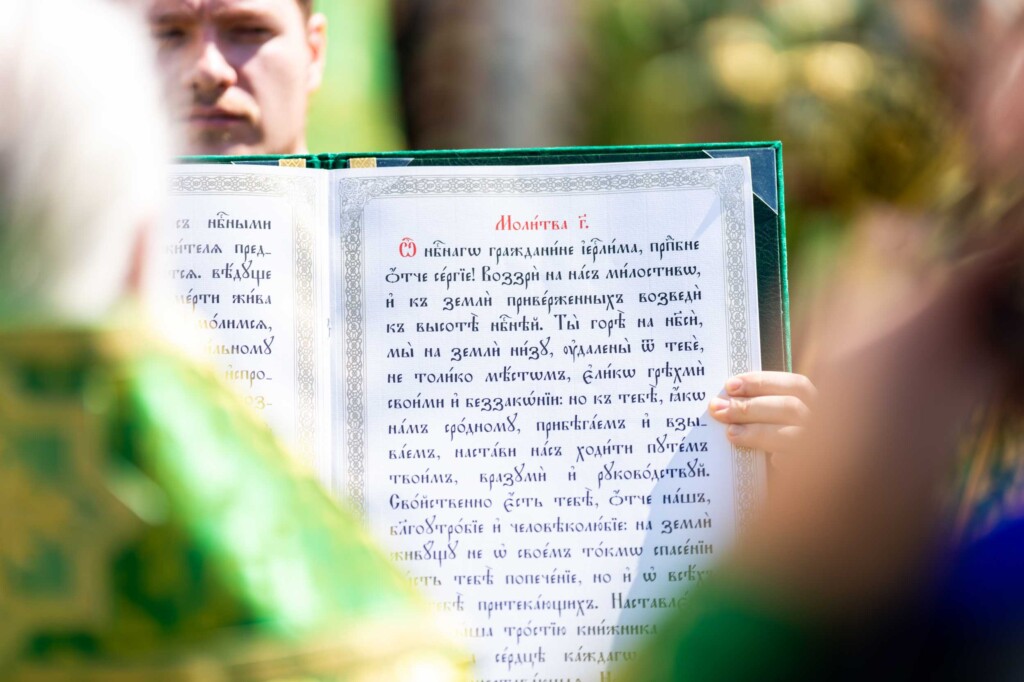 съ нб҃ными
жителя пред_
тся. вѣдуще
мерти жива
мо́лимся,
льному
и҆спро_
Моли́тва г҃.
Ѿ нб҃нагѡ гражданине і҆ерⷭ҇ли́ма, прпⷣбне
ѻ҆́тче се́ргїе! Воззрѝ на на́съ ми́лостивѡ,
и҆ къ землѝ приве́рженныхъ возведѝ
къ высотѣ̀ нбⷭ҇нѣй. Ты̀ горѣ̀ на нб҃сѝ,
мы̀ на землѝ ни́зꙋ, ᲂу҆далены̀ ѿ тебѐ,
не то́лико мѣ́стомъ, є҆ли́кѡ грѣхмѝ
свои́ми и҆ беззако́нїи: но къ тебѣ̀, ꙗ҆́кѡ
на́мъ сро́дномꙋ, прибѣга́емъ и҆ взы_
ва́емъ, наста́ви на́съ ходи́ти пꙋте́мъ
твои́мъ, вразꙋмѝ и҆ рꙋково́дствꙋй.
Сво́йственно є҆́сть тебѣ̀, ѻ҆́тче на́шъ,
бл҃гоꙋтро́бїе и҆ человѣколю́бїе: на землѝ
живꙋ́щꙋ не ѡ҆ свое́мъ то́кмѡ спасе́нїи
тебѣ̀ попече́нїе, но и҆ ѡ҆ всѣ́хъ
притека́ющихъ. Наставле́
тро́стїю кни́жника
се́рдцѣ ка́ждагѡ